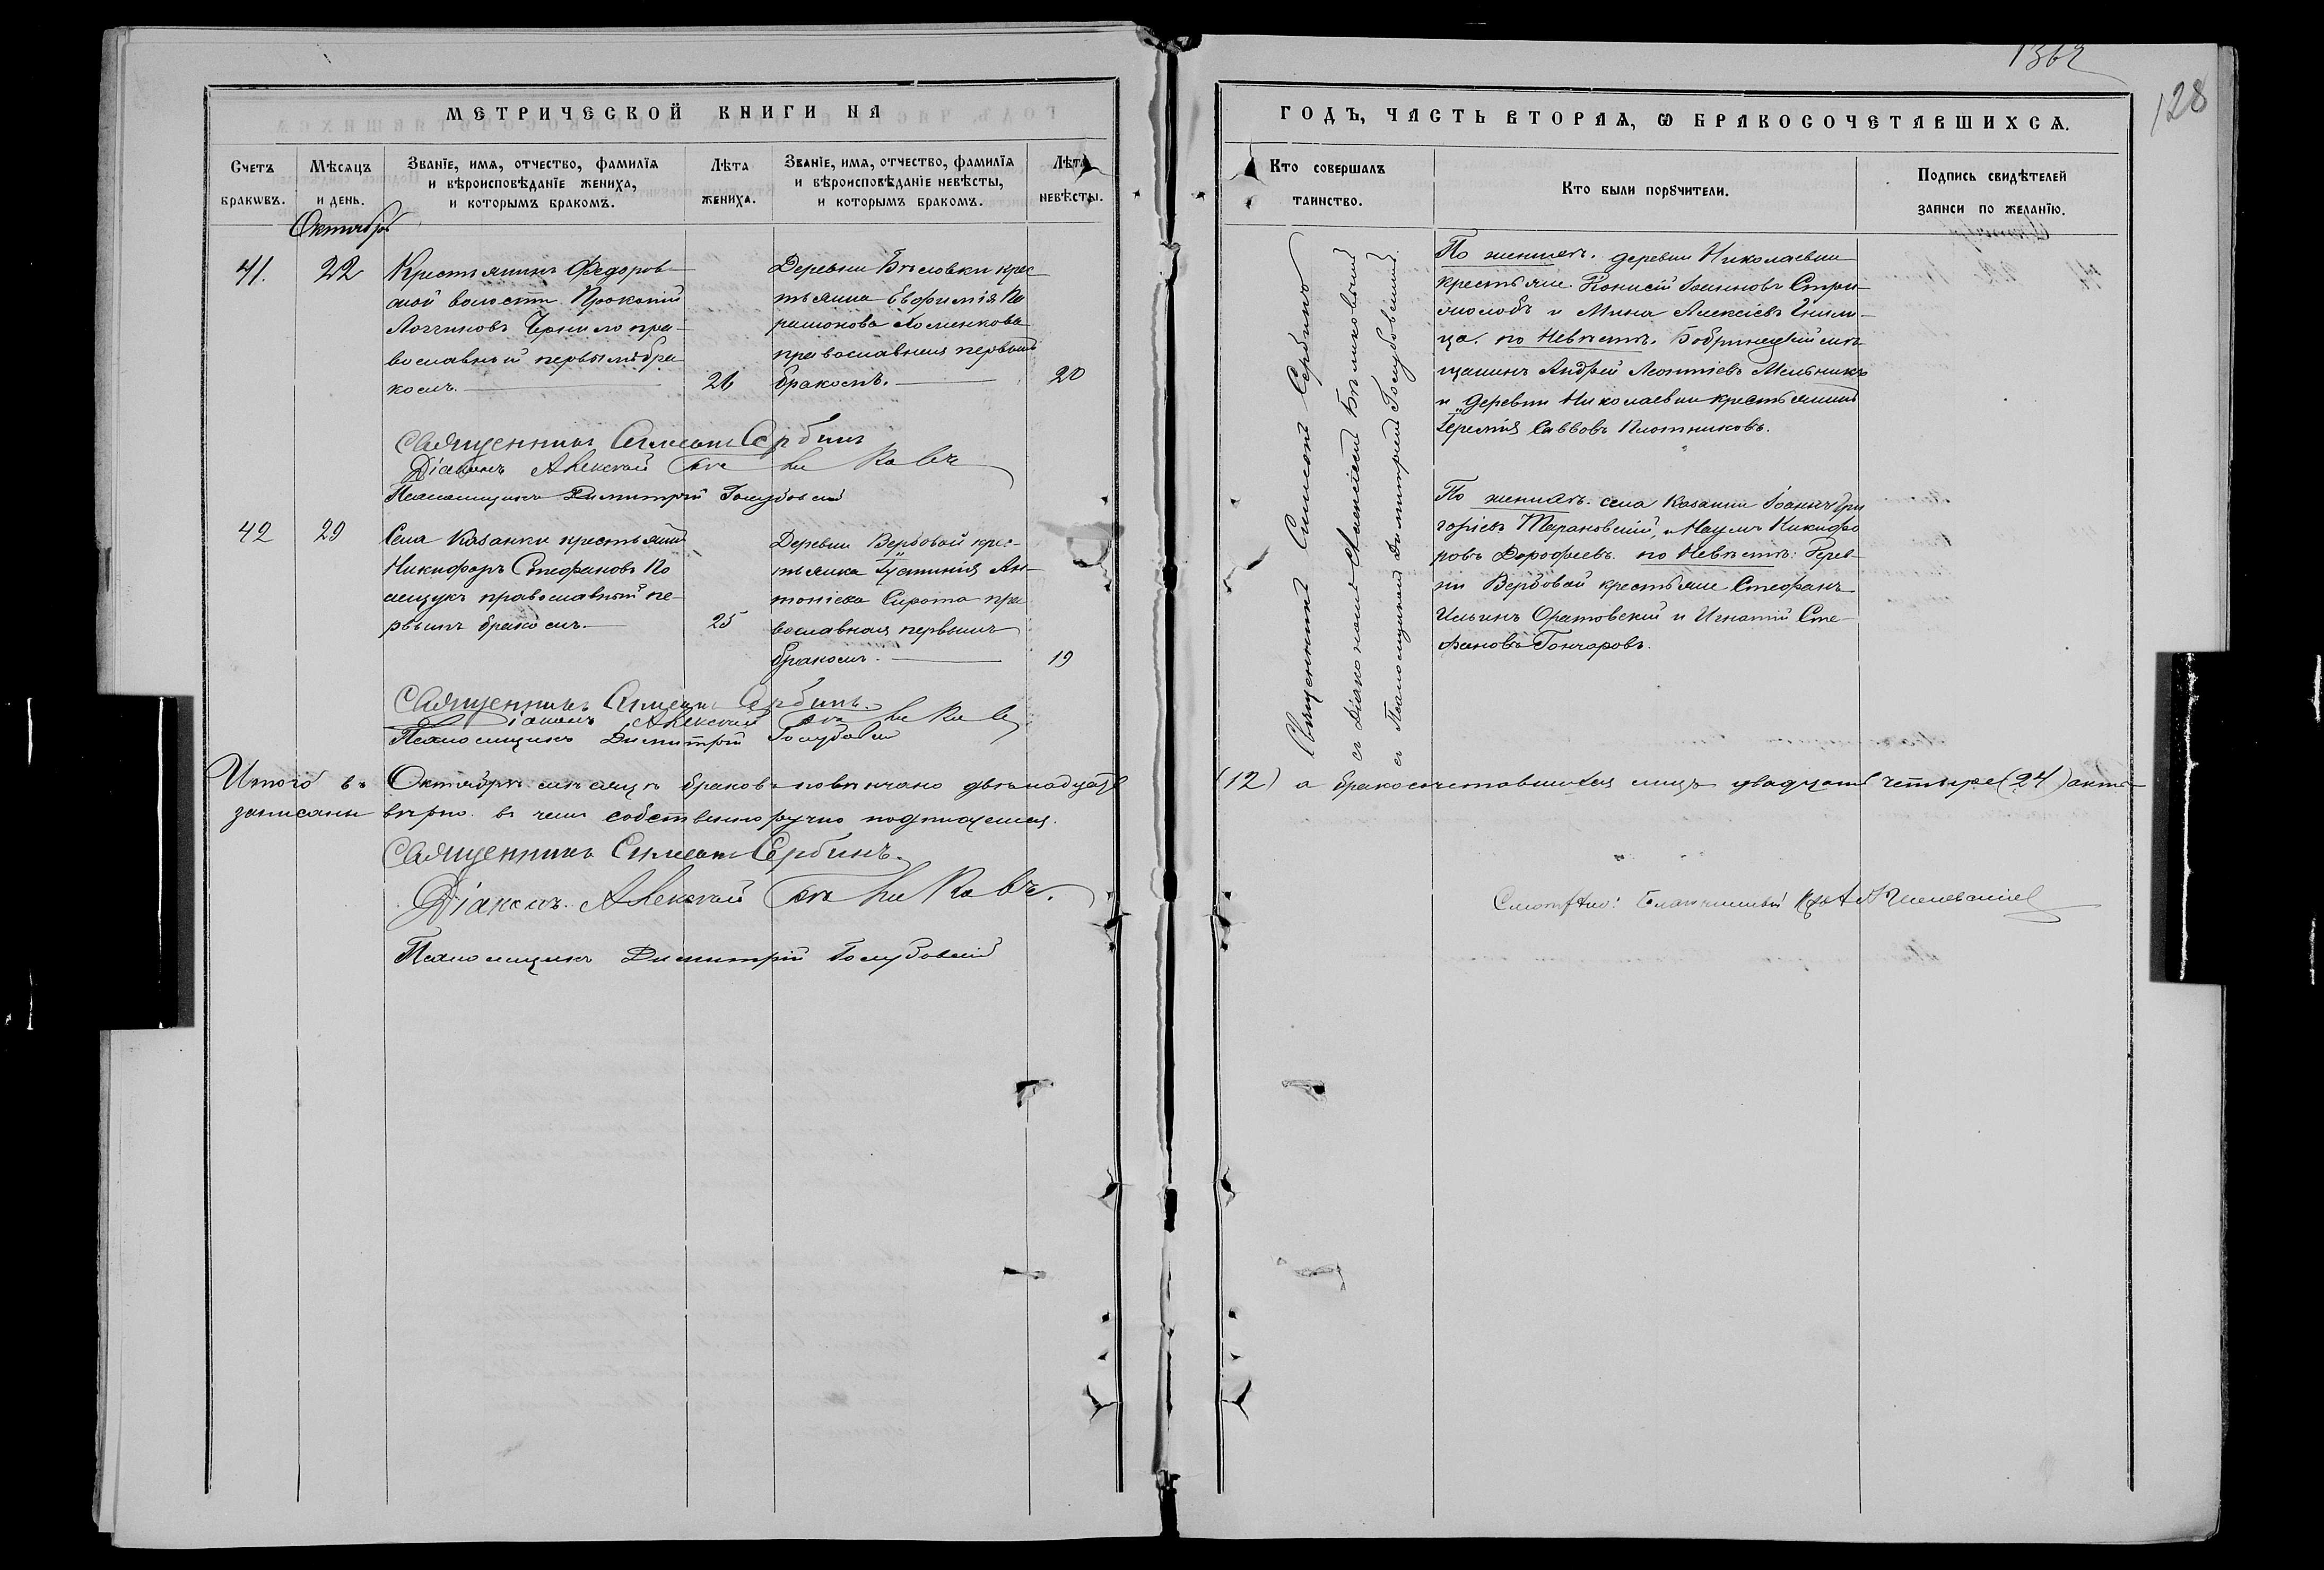 1362
128
МЕТРИЧЕСКОЙ КНИГИ НА
ГОДЪ, ЧАСТЬ ВТОРАѦ, Ѡ БРАКОСОЧЕТАВШИХСѦ.
Счетъ браковъ.
Мѣсяцъ и день.
Званіе, имя, отчество, фамилія и вѣроисповѣданіе жениха, и которымъ бракомъ.
Лѣта жениха.
Званіе, имя, отчество, фамилія и вѣроисповѣданіе невѣсты, и которымъ бракомъ.
Лѣта невѣсты.
Кто совершалъ таинство.
Кто были порꙋчители.
Подпись свидѣтелей записи по желанію.
Октябрь
41.
22
Крестьянинъ Федоров-
ской волости Прокопій
Логгиновъ Чернило пра-
вославный первымъ бра
комъ.
26
Деревни Бѣловки крес
тьянка Евфимія Па
рамонова Хоменкова
православная первымъ
бракомъ.
20
Священникъ Симеонъ Сербинъ
Діаконъ Алексій Бѣликовъ
Псаломщикъ Димитрій Голубовскій
Священникъ Симеонъ Сербинъ
съ Діакономъ Алексіемъ Бѣликовымъ
съ Псаломщикомъ Димитріемъ Голубовскимъ.
По женихѣ. деревни Николаевки
крестьяне Іоанновъ Стри-
и Мина Алексіевъ
ца. по Невѣстѣ. Бобринецкій мѣ-
щанинъ Андрей Леонтіевъ Мельникъ
и деревни Николаевки крестьянинъ
Іеремія Саввовъ Плотниковъ.
42
29
Села Казанки крестьянинъ
Никифоръ Стефановъ По
лищукъ православный пе-
рвымъ бракомъ.
25
Деревни Вербовой крес-
тьянка Іустинія Ан-
тоніева Сирота пра
вославная первымъ
бракомъ.
19
По женихѣ. села Казанки Іоаннъ Гри
горіевъ Тарановскій, Наумъ Никифо
ровъ Дорофеевъ. по Невѣстѣ: Дерев-
ни Вербовой крестьяне Стефанъ
Ильинъ Оратовскій и Игнатій Сте-
фановъ Гончаровъ.
Священникъ Симеонъ Сербинъ.
Діаконъ Алексій Бѣликовъ
Псаломщикъ Димитрій Голубовскій
Итого въ Октябрѣ мѣсяцѣ браковъ повѣнчано двѣнадцать (12) а бракосочетавшихся лицъ двадцать четыре (24) акты
записаны вѣрно. въ чемъ собственноручно подписуемся.
Священникъ Симеонъ Сербинъ.
Діаконъ Алексій Бѣликовъ.
Псаломщикъ Димитрій Голубовскій
Смотрѣлъ: Благочинный